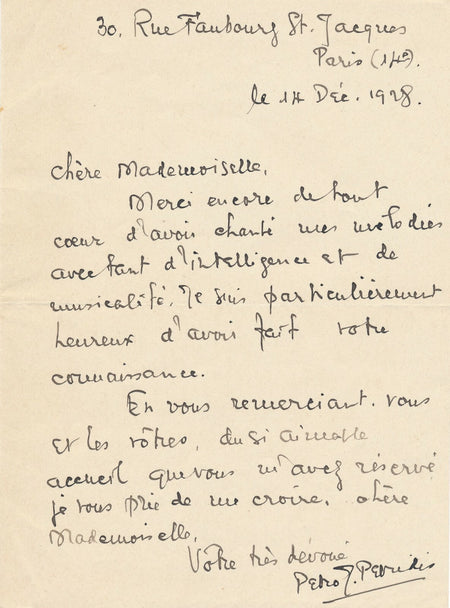 30, Rue Faubourg St. Jacques
Paris (14e).
le 14 Déc. 1928.
chère Mademoiselle,
Merci encore de tout
cœur d'avoir chanté mes mélodies
avec tant d'intelligence et de
musicalité. Je suis particulièrement
heureux d'avoir fait votre
connaissance.
En vous remerciant, vous
et les vôtres, du si aimable
accueil que vous m'avez réservé
je vous prie de me croire, chère
Mademoiselle,
Votre très dévoué
Petro J. Petridis